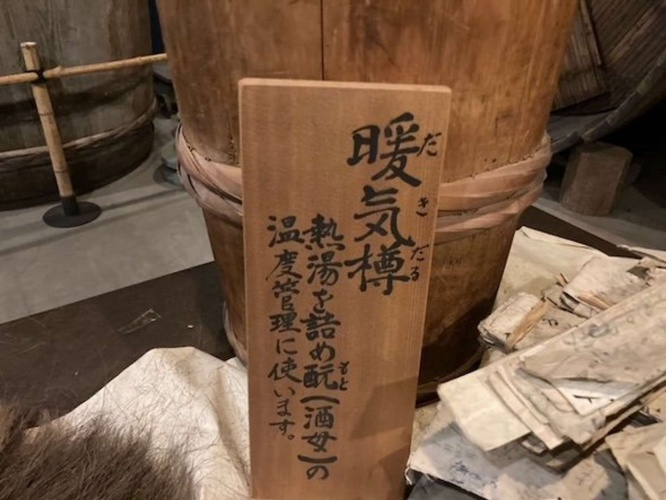 暖気樽
だきだる
熱湯を詰め酛(酒母)の
もと
温度管理に使います。